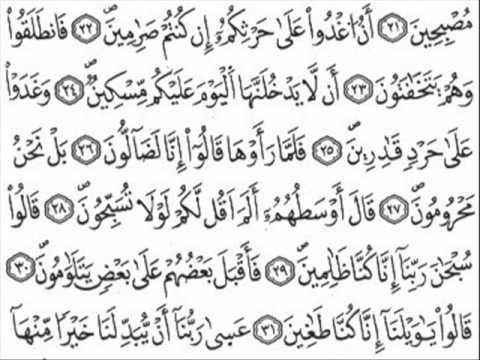 مُصْبِحِينَ ﴿٢١﴾ أَنِ ٱغْدُوا۟ عَلَىٰ حَرْثِكُمْ إِن كُنتُمْ صَـٰرِمِينَ ﴿٢٢﴾ فَٱنطَلَقُوا۟
وَهُمْ يَتَخَـٰفَتُونَ ﴿٢٣﴾ أَن لَّا يَدْخُلَنَّهَا ٱلْيَوْمَ عَلَيْكُم مِّسْكِينٌ ﴿٢٤﴾ وَغَدَوْا۟
عَلَىٰ حَرْدٍ قَـٰدِرِينَ ﴿٢٥﴾ فَلَمَّا رَأَوْهَا قَالُوٓا۟ إِنَّا لَضَآلُّونَ ﴿٢٦﴾ بَلْ نَحْنُ
مَحْرُومُونَ ﴿٢٧﴾ قَالَ أَوْسَطُهُمْ أَلَمْ أَقُل لَّكُمْ لَوْلَا تُسَبِّحُونَ ﴿٢٨﴾ قَالُوا۟
سُبْحَـٰنَ رَبِّنَآ إِنَّا كُنَّا ظَـٰلِمِينَ ﴿٢٩﴾ فَأَقْبَلَ بَعْضُهُمْ عَلَىٰ بَعْضٍ يَتَلَـٰوَمُونَ ﴿٣٠﴾
قَالُوا۟ يَـٰوَيْلَنَآ إِنَّا كُنَّا طَـٰغِينَ ﴿٣١﴾ عَسَىٰ رَبُّنَآ أَن يُبْدِلَنَا خَيْرًا مِّنْهَآ